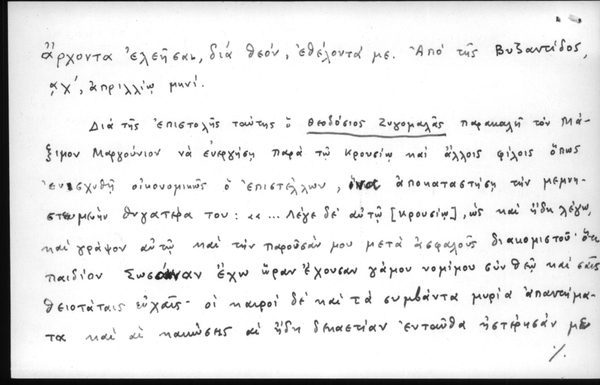 ἄρχοντα ἐλεῆσαι, διά θεόν, ἐθέλοντά με. Ἀπό τῆς Βυζαντίδος,
͵αχ', ἀπριλλίῳ μηνί.
Διά τῆς ἐπιστολῆς ταύτης ὁ Θεοδόσιος Ζυγομαλᾶς παρακαλῆ τόν Μά-
ξιμον Μαργούνιον νά ἐνεργήσῃ παρά τῷ Κρουσίῳ καί ἄλλοις φίλοις ὅπως
ἐνισχυθῇ οἰκονομικῶς ὁ ἐπιστέλλων, ἵνα ἀποκαταστήσῃ τήν μεμνη-
στευμένην θυγατέρα του: «... Λέγε δέ αὐτῷ [Κρουσίῳ], ὡς καί ἤδη λέγω,
καί γράψον αὐτῷ καί τήν παροῦσάν μου μετά ἀσφαλοῦς διακομιστοῦ· ὅτι
παιδίον Σωσάναν ἔχω ὥραν ἔχουσαν γάμου νομίμου σύν θεῷ καί σαῖς
θειοτάταις εὐχαῖς· οἱ καιροί δέ καί τά συμβάντα μυρία ἀπαντήμα-
τα καί αἱ κακώσεις αἱ ἤδη δεκαετίαν ἐνταῦθα ἐστέρησάν με
./.